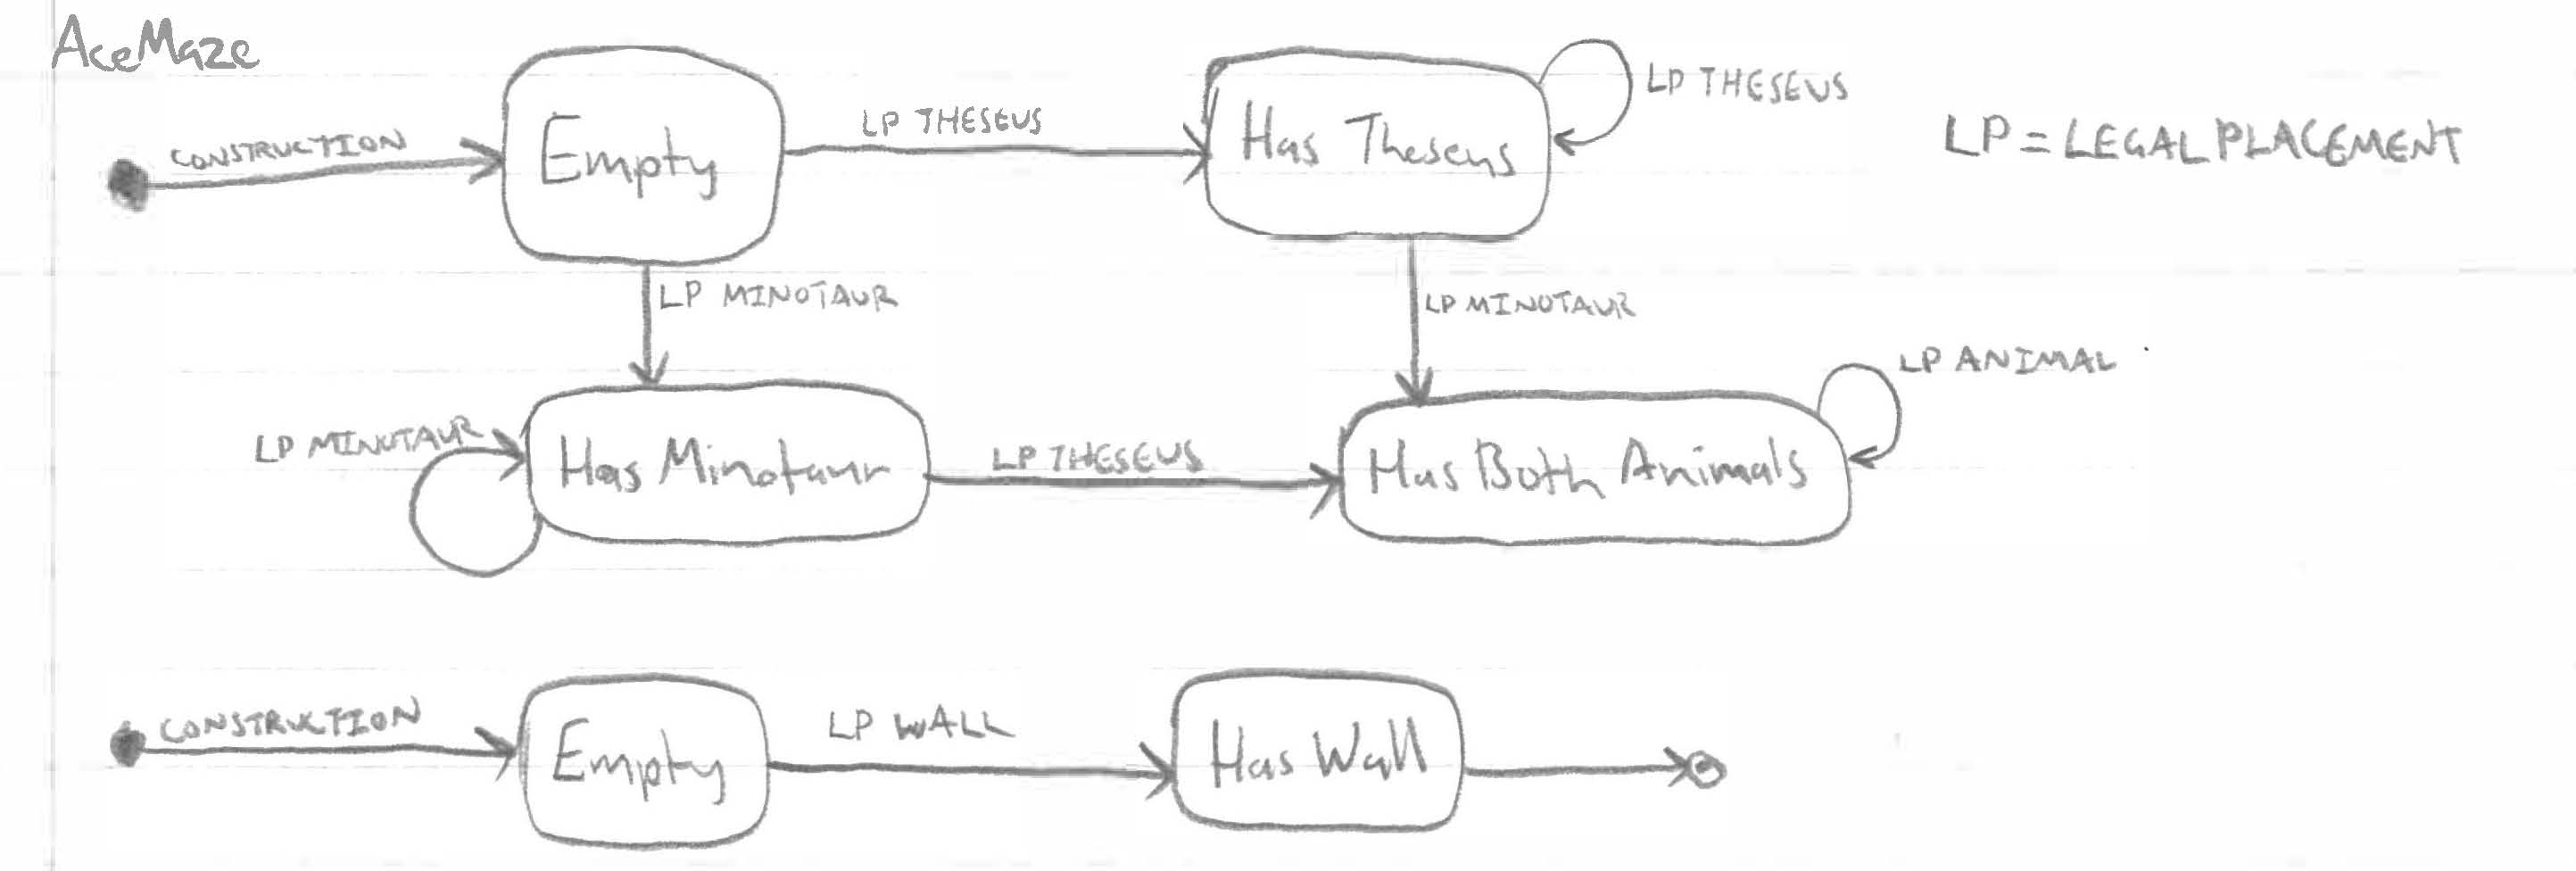 AceMaze
CONSTRUCTION
Empty
LP THESEUS
Has Theseus
LP THESEUS
LP = LEGAL PLACEMENT
LP MINOTAUR
LP MINOTAUR
LP MINOTAUR
Has Minotaur
LP THESEUS
Has Both Animals
LP ANIMAL
CONSTRUCTION
Empty
LP WALL
Has Wall